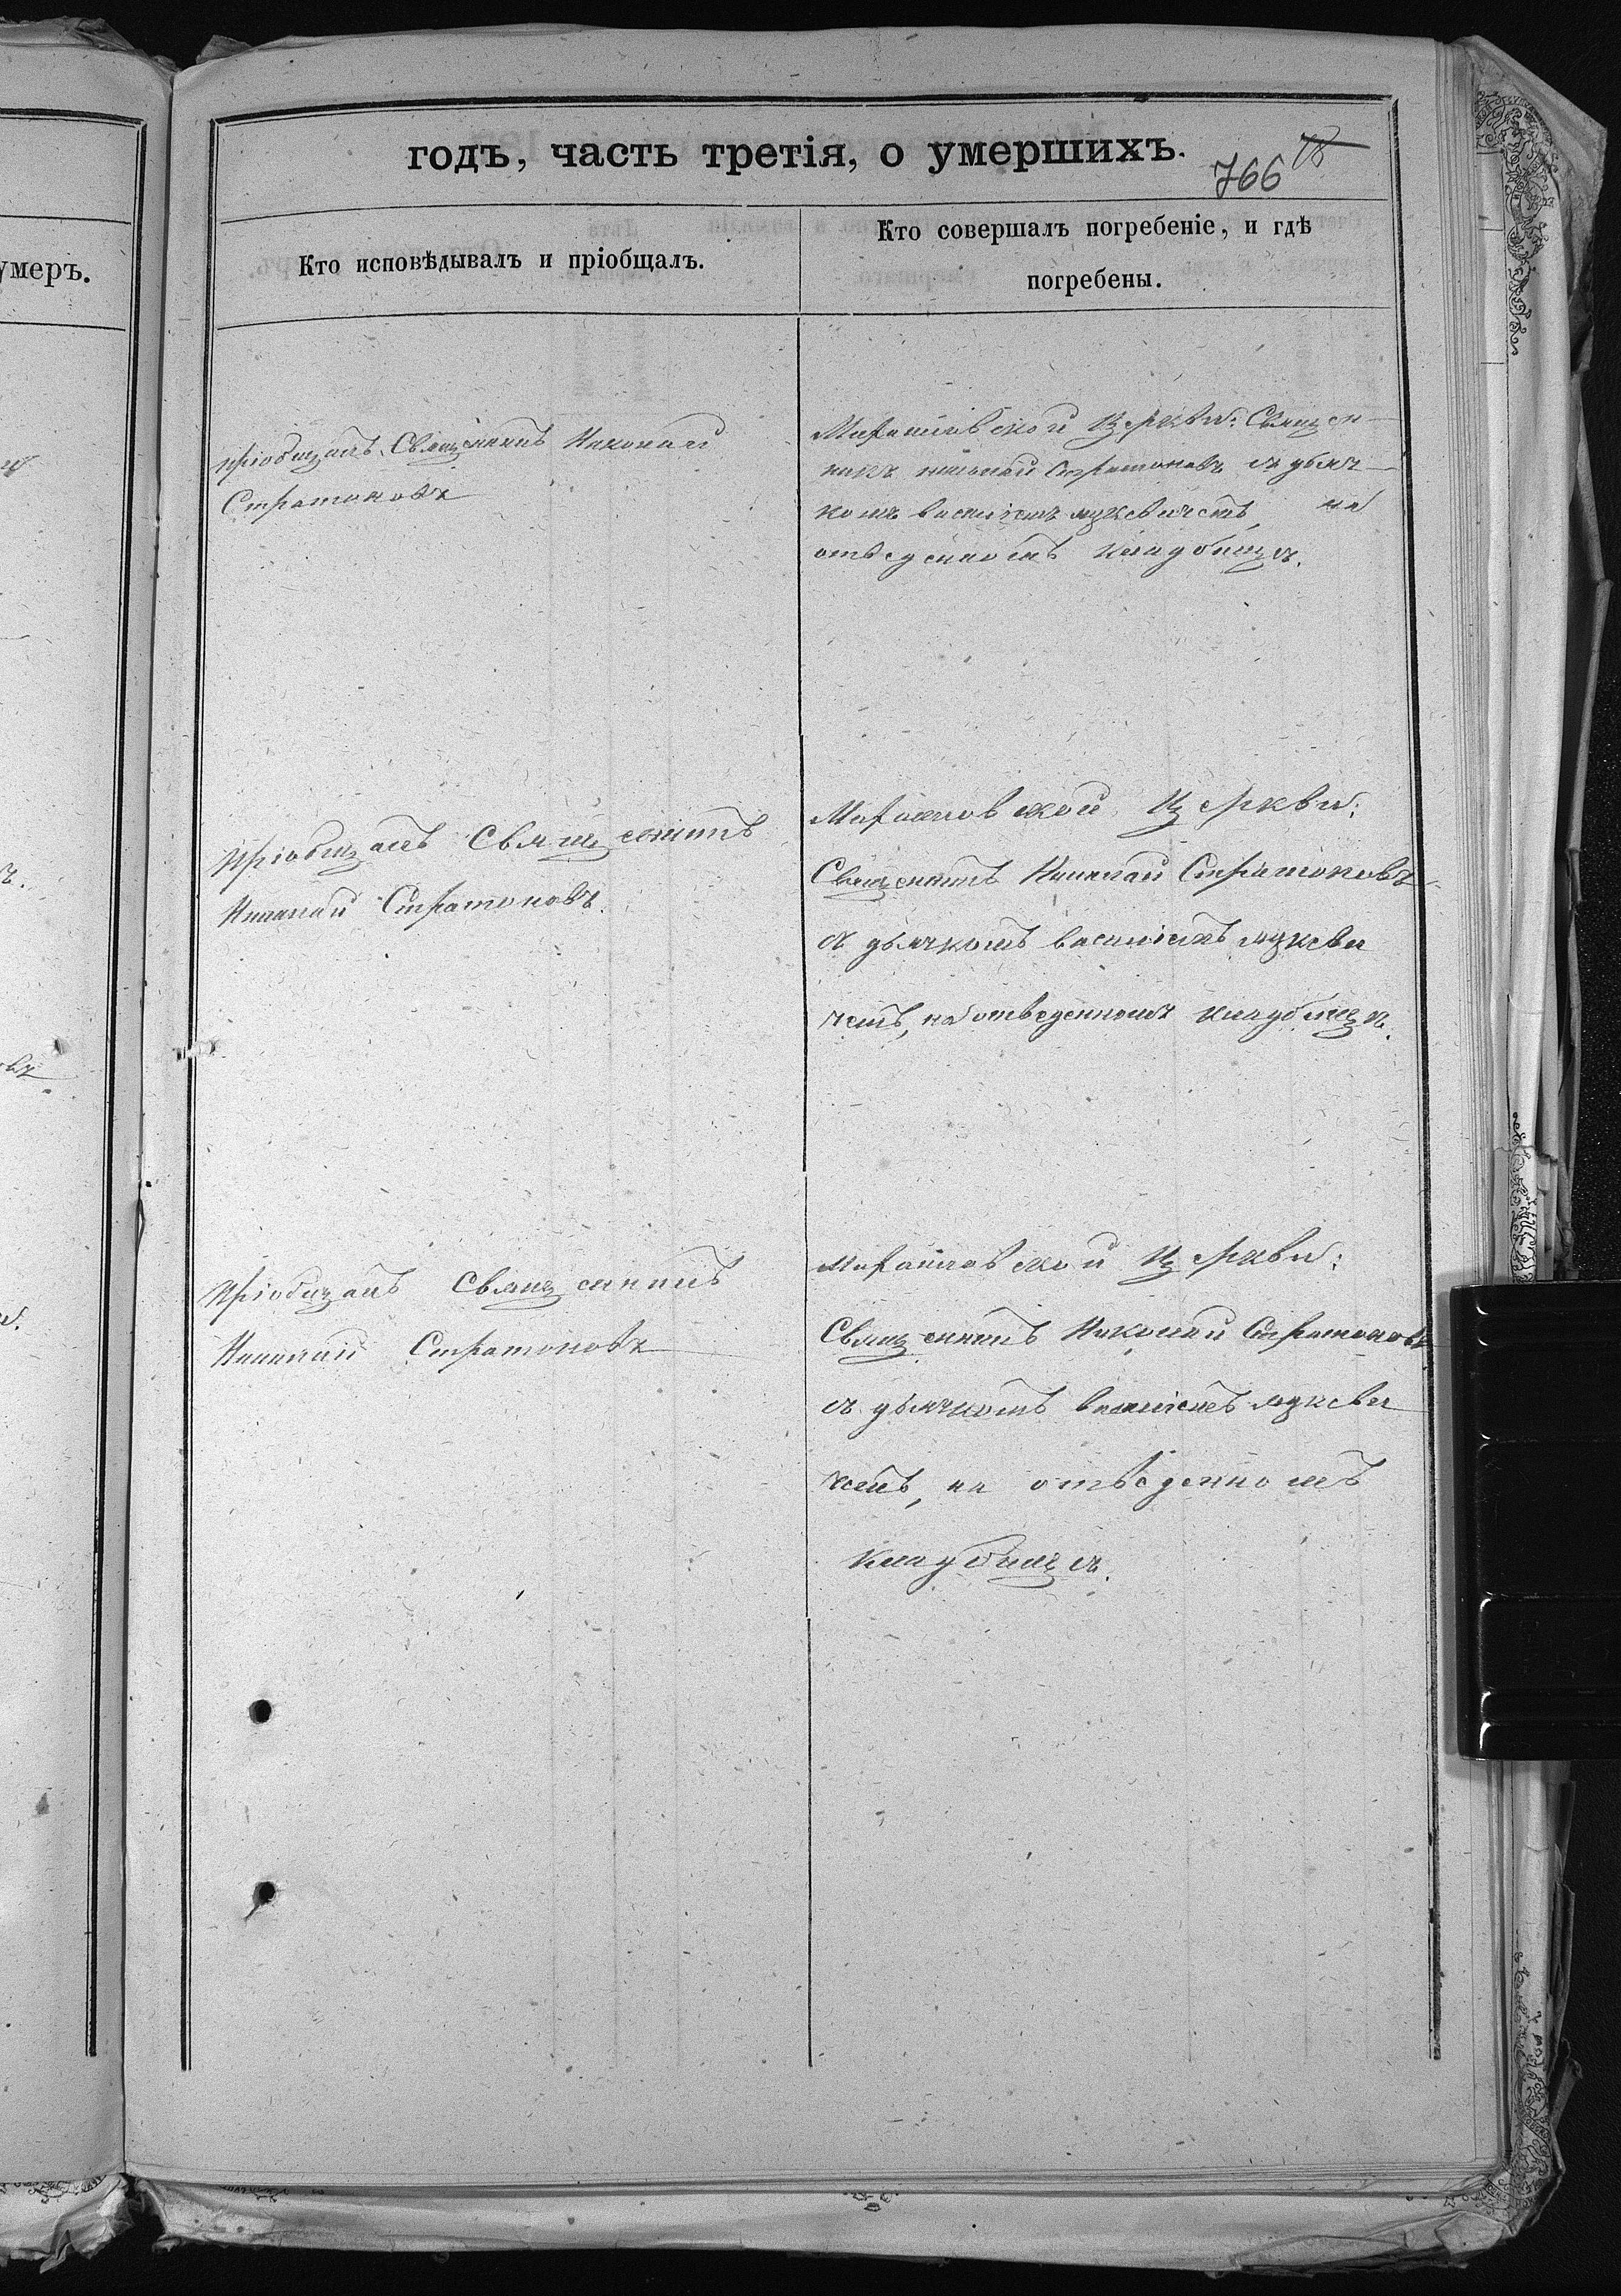 годъ, часть третія, о умершихъ.
766
умеръ.
Кто исповѣдывалъ и пріобщалъ.
Кто совершалъ погребеніе, и гдѣ
погребены.
пріобщалъ Священникъ Николай
Стратоновъ
Михайловской Церкви: Священ-
никъ николай Стратоновъ съ дьяч-
комъ василіемъ на
отведенномъ Кладбищѣ.
пріобщалъ Священникъ
Николай Стратоновъ.
Михайловской Церкви:
Священникъ Николай Стратоновъ
съ дьячкомъ василіемъ
чемъ, на отведенномъ кладбищѣ.
пріобщалъ Священникъ
Николай Стратоновъ
михайловской Церкви:
Священникъ Николай Стратоновъ
съ дьячкомъ василіемъ
чемъ, на отведенномъ
Кладбищѣ.